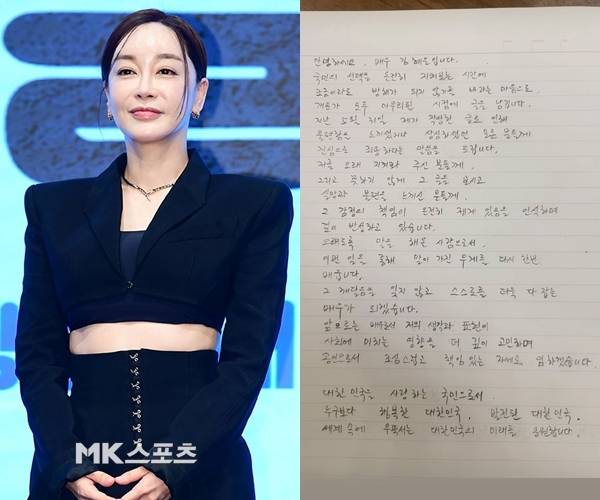 안녕하세요. 배우 김혜은입니다.
국민의 선택을 온전히 지켜보는 시간에
조금이라도 방해가 되지 않기를 바라는 마음으로
개표가 모두 마무리된 시점에 글을 남깁니다.
지난 5월 31일 제가 작성한 글로 인해
불편함을 느끼셨거나 상심하셨던 모든 분들께
진심으로 죄송하다는 말씀을 드립니다.
저를 오래 지켜봐 주신 분들께.
그리고 뜻하지 않게 그 글을 보시고
실망과 불편을 느끼신 분들께.
그 감정의 책임이 온전히 제게 있음을 인식하며
깊이 반성하고 있습니다.
오래도록 말을 해온 사람으로서.
이번 일을 통해 말이 가진 무게를 다시 한번
배웁니다.
그 깨달음을 잊지 않고 스스로를 더욱 다잡는
배우가 되겠습니다.
앞으로는 배우로서 저의 생각과 표현이
사회에 미치는 영향을 더 깊이 고민하며
공인으로서 조심스럽고 책임 있는 자세로 임하겠습니다.
대한민국을 사랑하는 국민으로서
누구보다 행복한 대한민국, 발전된 대한민국.
세계 속에 우뚝서는 대한민국의 미래를 응원합니다.
MK스포츠